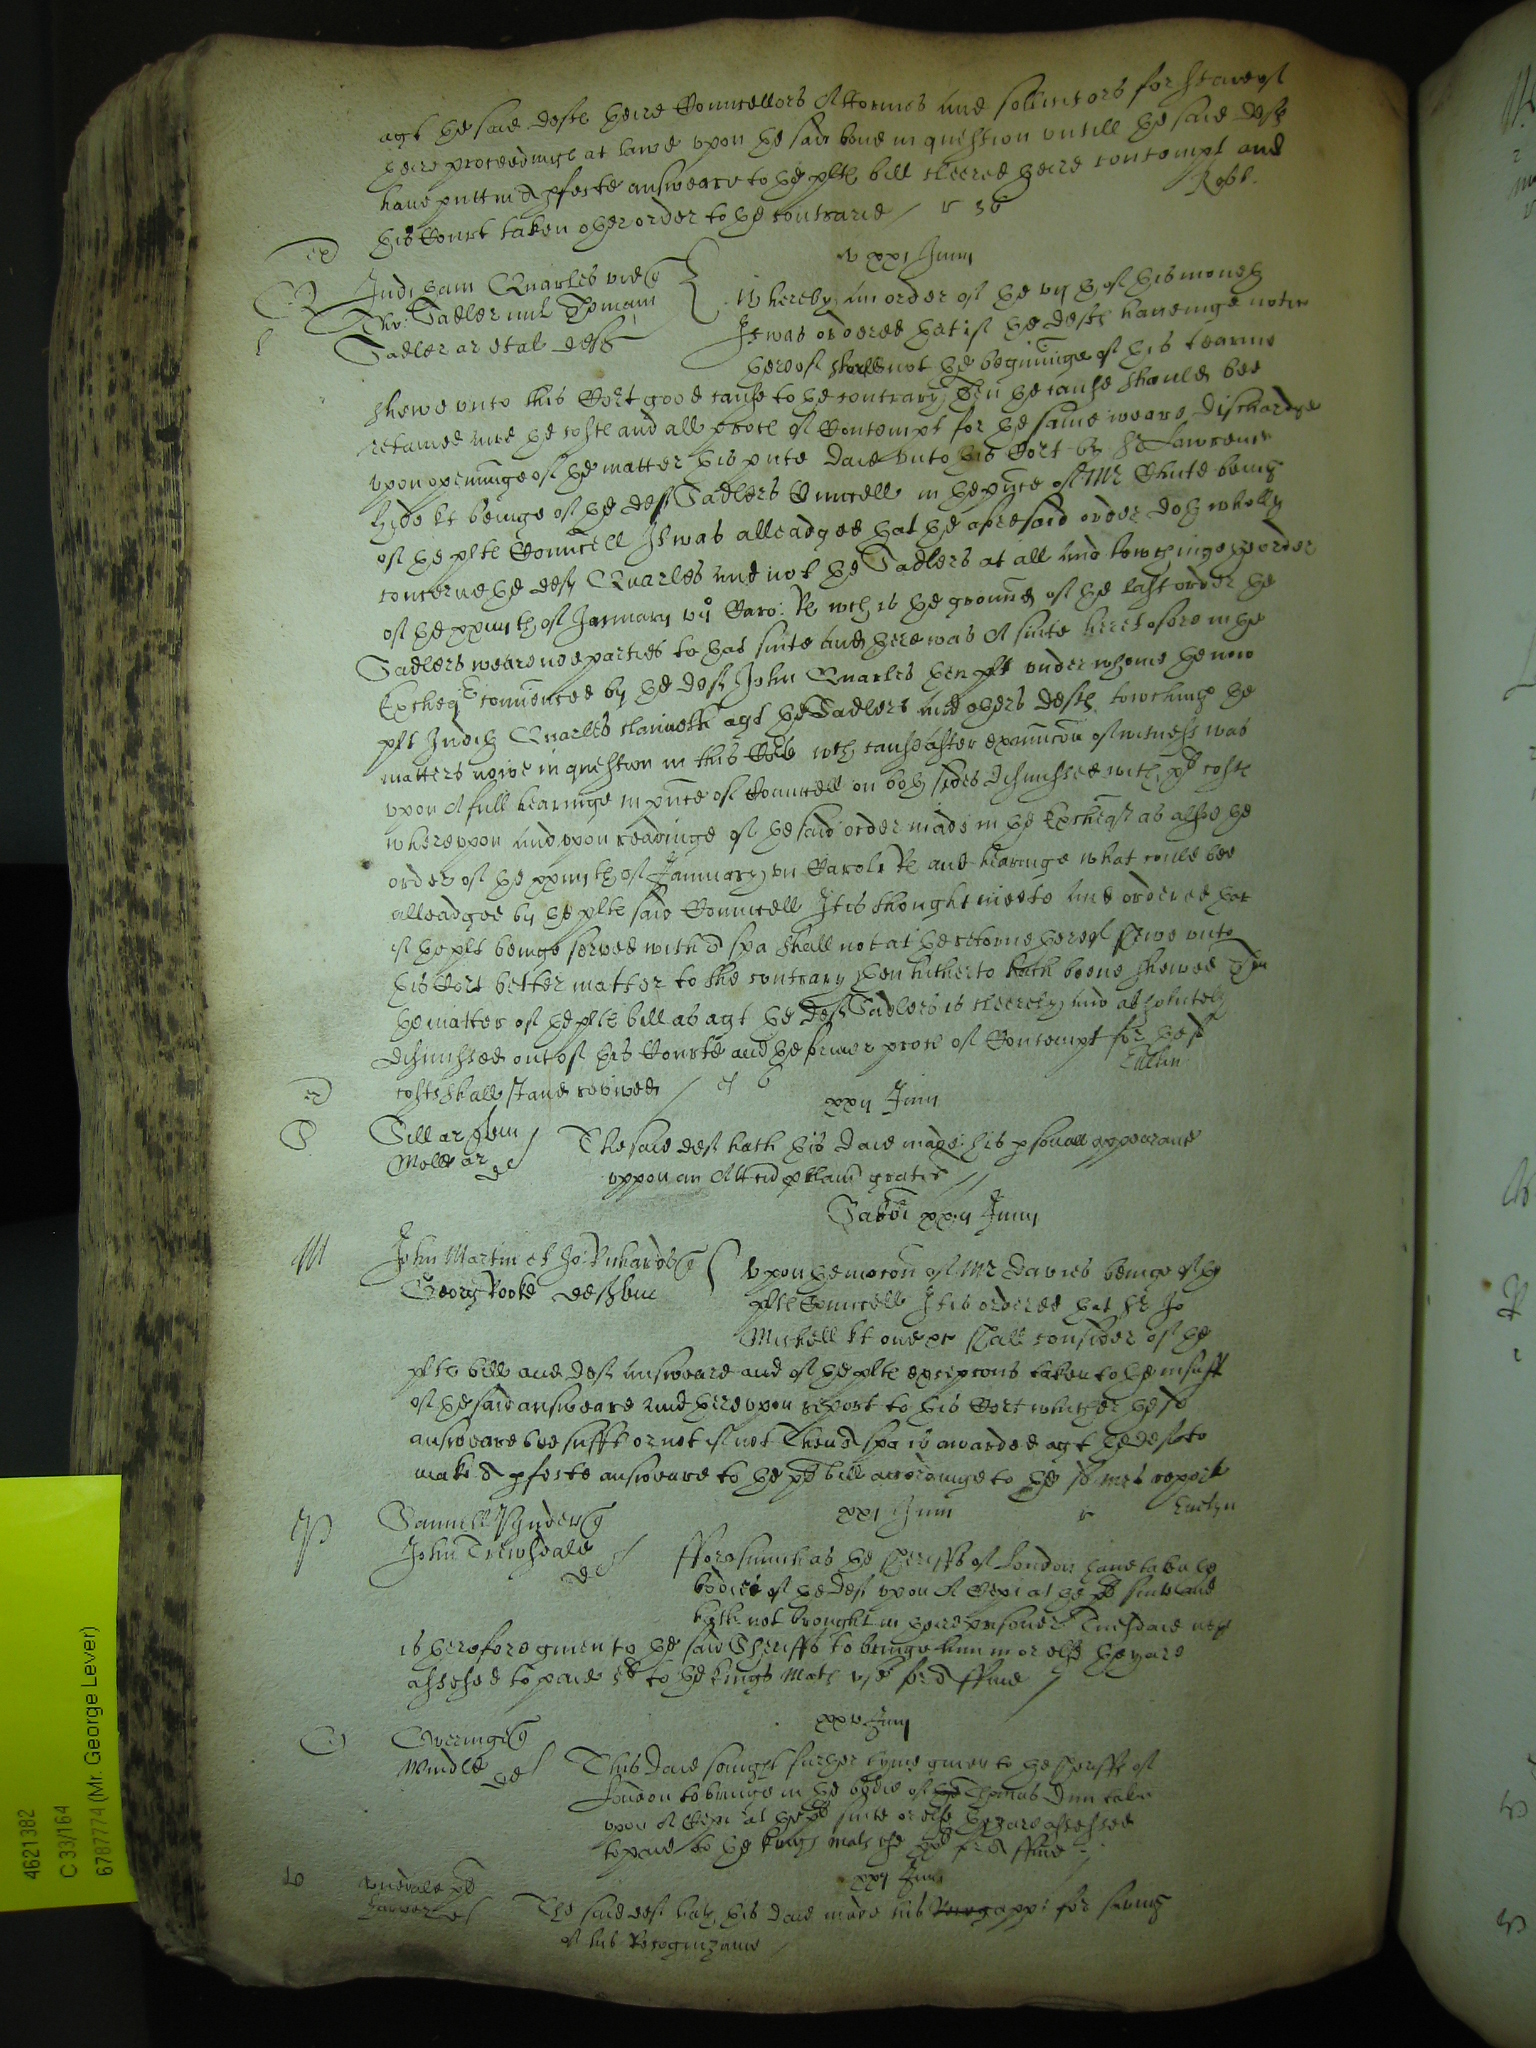 agt the said defts theire Councellors Attornies and sollicitors for staie of
theire proceedings at lawe upon the said bond in question untill the said defts
have putt in a pfecte answeare to the plts bill cleered theire contempt and
this Court taken other order to the contrarie
Robt.
xxi Junii
Judi tham Quarles vid q
Sadler mil Thomam
Sadler ar et al defts
Whereby an order of the vij th of this moneth
It was ordered that if the defts haveinge notice
thereof should not the beginninge of this tearme
shewe unto this Cort good cause to the contrary then the cause should bee
retained and the costs and all proces of Contempt for the same weare discharged
upon openinge of the matter this pnte daie unto this Cort by Sr Lawrence
Hide kt beinge of the deft Sadlers Councell in the pnce of Mr Chute beinge
of the plts Councell It was alleadged that the aforesaid order doth wholly
concerne the deft Quarles and not the Sadlers at all and towchinge the order
of the xxiiij th of January vij Caro: R wch is the ground of the last order the
Sadlers weare noe parties to that suite and there was A suite heretofore in the
Excheqr comenced by the deft John Quarles then plt under whome the now
plt Judith Quarles claimeth agt the Sadlers and others defts towching the
matters nowe in question in this Cort wch cause after examinacon of witness was
upon A full hearinge in pnce of Councell on both sides dismissed with costs
whereupon and upon readinge of the said order made in the Excheqr as alsoe the
order of the xxiiij th of January vij Caroli R and hearinge what could bee
alleadged by the plts said Councell It is thought meete and ordered that
if the plt beinge served with a spa shall not at the retorne thereof shewe unto
this Cort better matter to the contrary then hitherto hath beene shewed then
the matter of the plts bill as agt the deft Sadlers is cleerely and absolutely
dismissed out of this Courte and the former proces of Contempt for the sd
costs shall stand revived
xxij Junii
Mollt ar def
The said deft hath this daie made his psonall appearance
uppon an Attach pclam gratis
Sabbi xxij Junii
John Martin et Jo: Richards q
Georg Rooke deft
Upon the mocon of Mr Davies beinge of the
plts Councell It is ordered that Sr Jo
Michell kt one etc shall consider of the
plts bill and deft answeare and of the plts excepcons taken to the insuff
of the said answeare and thereupon report to this Cort whither the sd
answeare bee sufft or not if not Then a spa is awarded agt the deft to
make a pfecte answeare to the pl bill accordinge to the sd mrs reporte
xxi Junii
Evelyn
Samuell Pinder q
John Trewsdale
def
fforasmuch as the Sheriffs of London have taken the
bodie of the deft upon A Cepi at the pl suite and
hath not brought in theire prisoner Tuesdaie next
is therefore given to the said Sheriffs to bringe him in or else they are
assessed to paie to the kings Mats use for a ffine
xxv Junii
Overinge q
Windle def
This daie senight further tyme given to the sheriffs of
London to bringe in the bodie of the Thomas Dun taken
upon A Cepi at the pl suite or else they are assessed
to paie to the kings mats for a ffine
xxi Junii
The said deft hath this daie made his app: for saving
of his Recognizance
4621382
C 33/164
6787774 (Mr. George Lever)